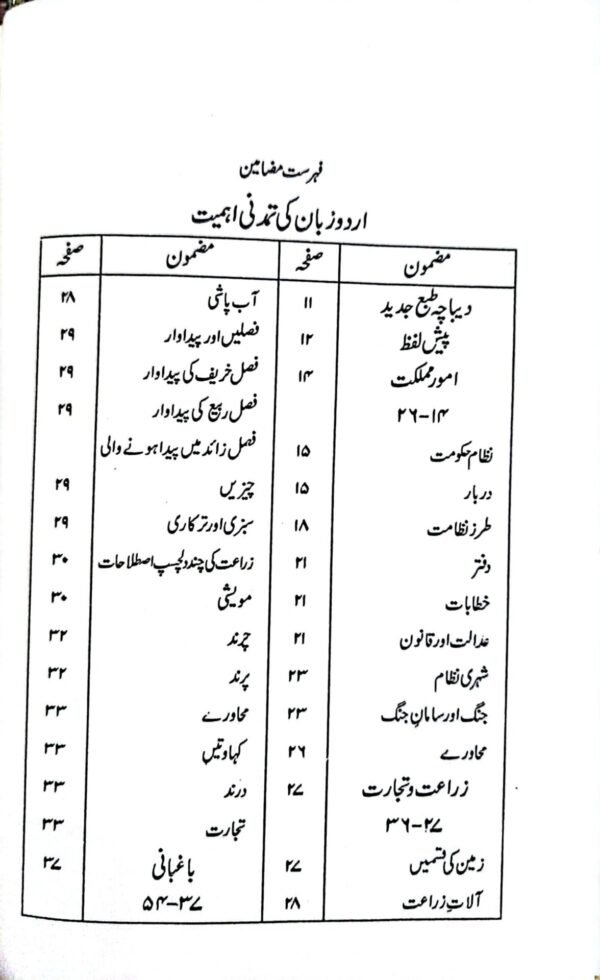 فہرست مضامین
اردو زبان کی تمدنی اہمیت
مضمون صفحہ
دیباچہ طبع جدید ۱۱
پیش لفظ ۱۲
امور مملکت ۱۴
۱۴-۲۶
نظام حکومت ۱۵
دربار ۱۵
طرز نظامت ۱۸
دفتر ۲۱
خطابات ۲۱
عدالت اور قانون ۲۱
شہری نظام ۲۳
جنگ اور سامانِ جنگ ۲۳
محاورے ۲۶
زراعت و تجارت ۲۷
۲۷-۳۶
زمین کی قسمیں ۲۷
آلاتِ زراعت ۲۸
مضمون صفحہ
آب پاشی ۲۸
فصلیں اور پیداوار ۲۹
فصل خریف کی پیداوار ۲۹
فصل ربیع کی پیداوار ۲۹
فصل زائد میں پیدا ہونے والی
چیزیں ۲۹
سبزی اور ترکاری ۲۹
زراعت کی چند دلچسپ اصطلاحات ۳۰
مویشی ۳۰
چرند ۳۲
پرند ۳۲
محاورے ۳۳
کہاوتیں ۳۳
درند ۳۳
تجارت ۳۳
باغبانی ۳۷
۳۷-۵۴